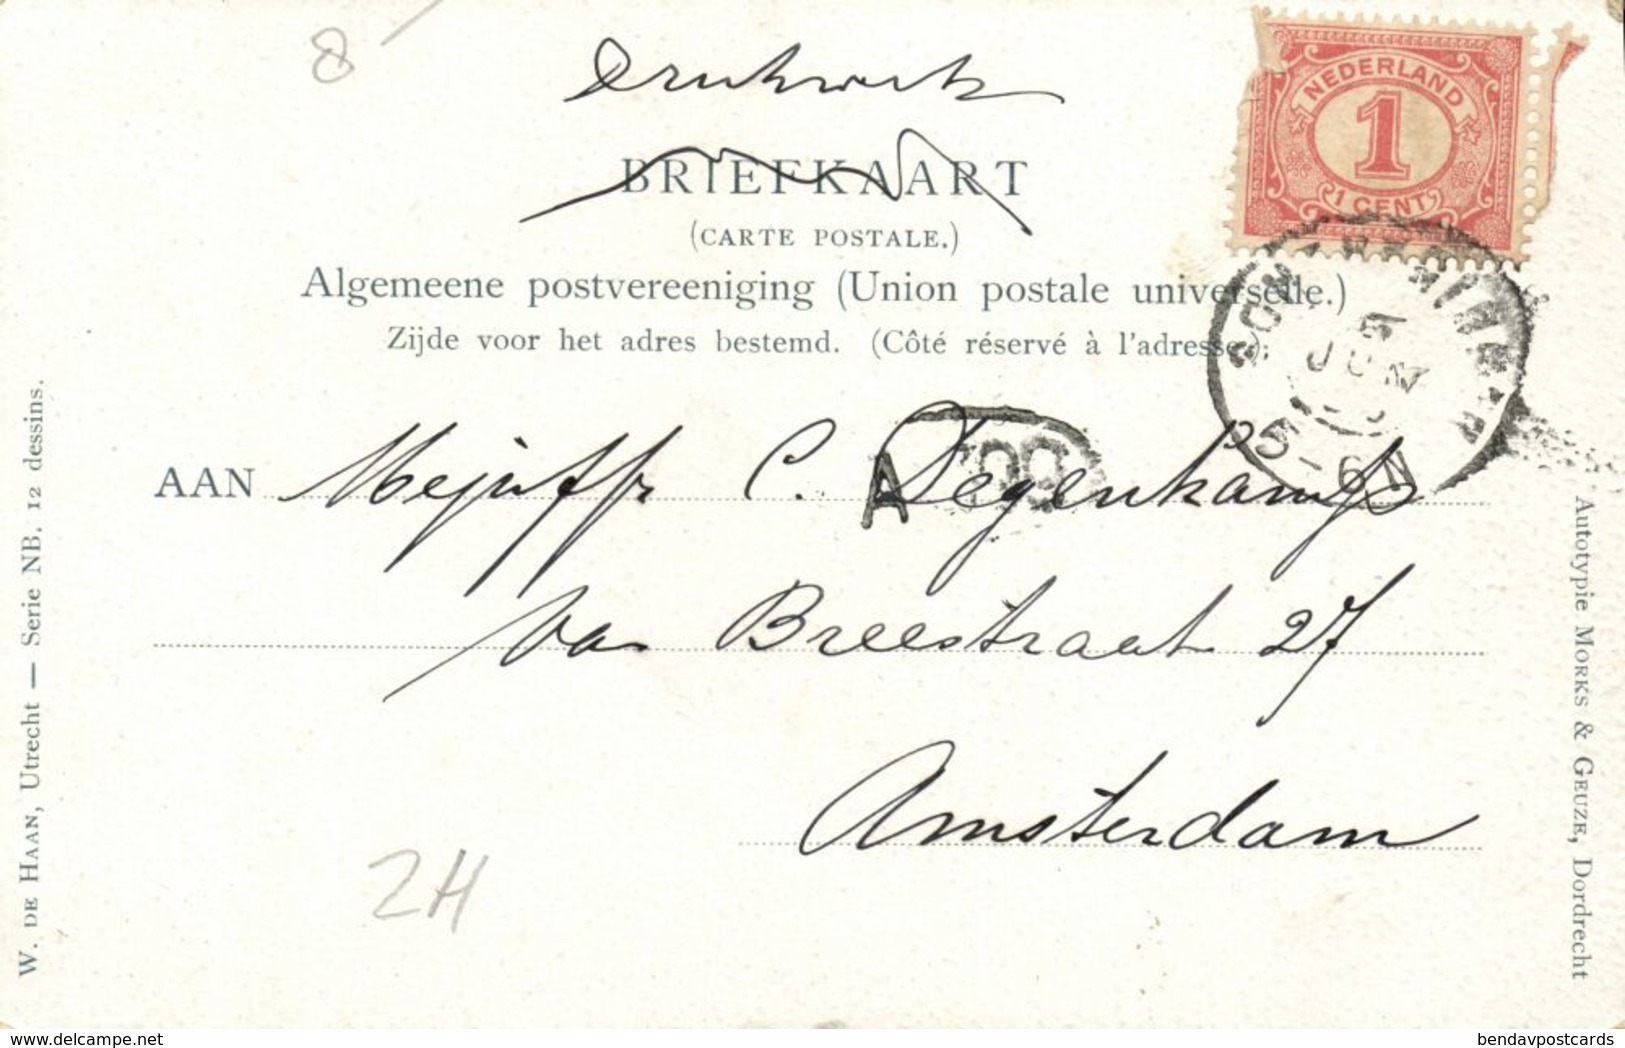 8
Drukwerk
BRIEFKAART
(CARTE POSTALE.)
Algemeene postvereeniging (Union postale universelle.)
Zijde voor het adres bestemd. (Côté réservé à l'adresse.);
NEDERLAND
1
1 CENT
5-6N
AAN Mejuffr C. Degenkamp
A
Breestraat 27
Amsterdam
2H
W. DE HAAN, Utrecht — Serie NB. 12 dessins.
Autotypie MORKS & GEUZE, Dordrecht
delcampe.net
bendavpostcards